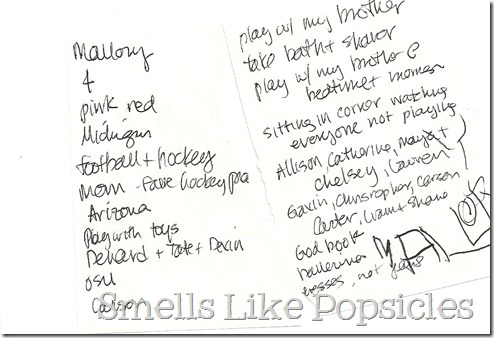 Mallory
4
pink red
Michigan
football + hockey
mom - fave hockey
Arizona
Play with toys
+ Tate +
OSU
Carson
play w/ my brother
take bath + shower
play w/ my brother @
bedtime +
sitting in corner watching
everyone not playing
Allison Catherine, Maya +
Chelsey, Lauren
Gavin, Christopher, Carson
Carter, Liam + Shane
God book
ballerina
dresses, not jeans
Smells Like Popsicles